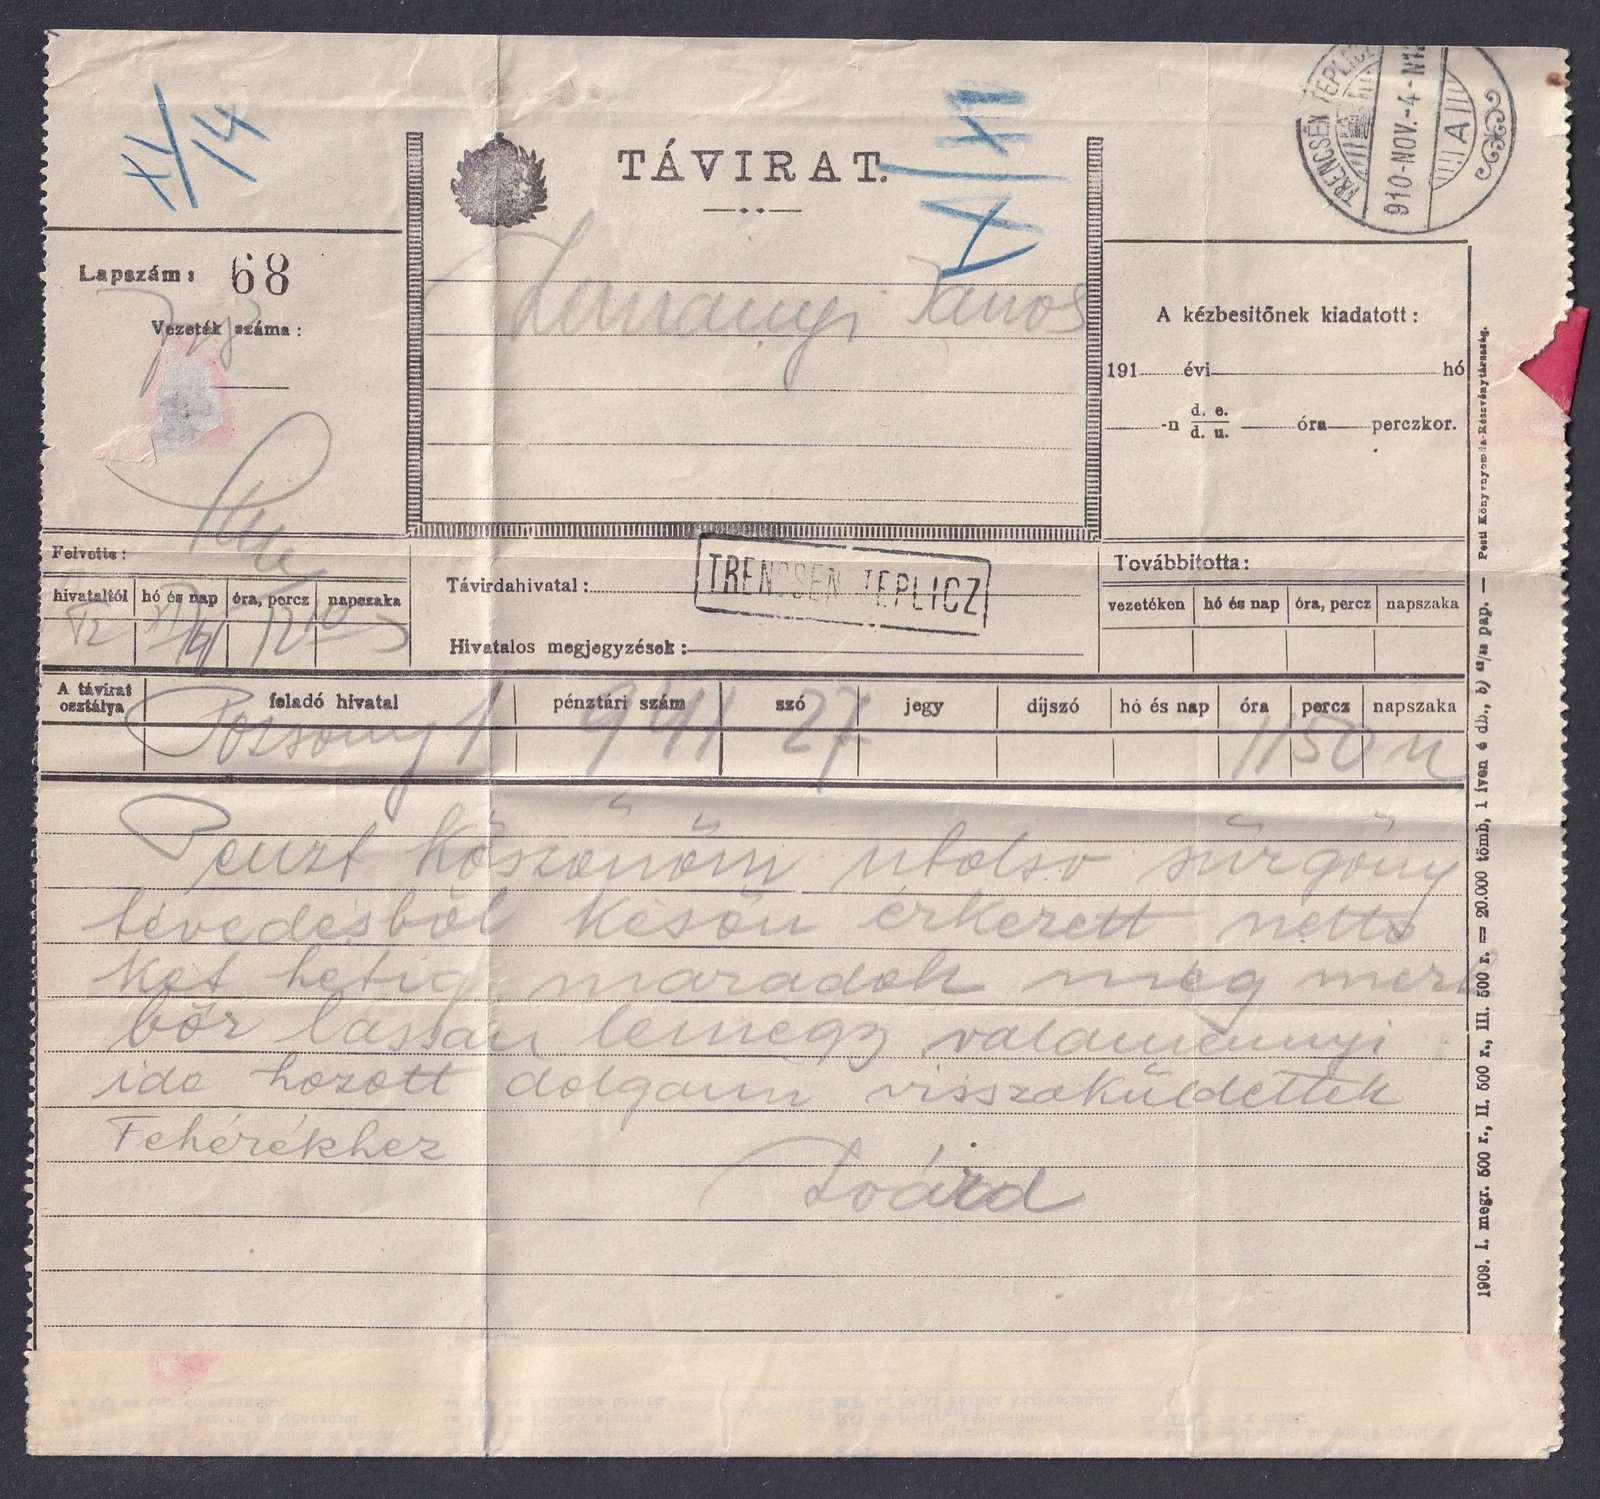 XI/14
TÁVIRAT.
TRENCSÉN TEPLICZ
910-NOV.-4-N12
A
Lapszám: 68
Vezeték száma:
János
A kézbesitőnek kiadatott:
191 évi hó
-n d. e. d. u. óra perczkor.
Felvette:
hivataltól hó és nap óra, percz napszaka
Tz XI/4 12
Távirdahivatal: TRENCSÉN TEPLICZ
Hivatalos megjegyzések:
Továbbitotta:
vezetéken hó és nap óra, percz napszaka
A távirat osztálya feladó hivatal pénztári szám szó jegy díjszó hó és nap óra percz napszaka
Pozsony 1 941 27 1150 n
Penzt köszönöm utolso sürgöny
tévedésböl késön érkezett netto
két hetig maradok meg mert
bőr lassan lemegy valamennyi
ide hozott dolgam visszaküldettek
Fehérékhez
Loárd
1909. I. megr. 500 r., II. 500 r., III. 500 r. = 20.000 tömb, 1 íven 4 db., b) pap. — Pesti Könyvnyomda-Részvénytársaság.